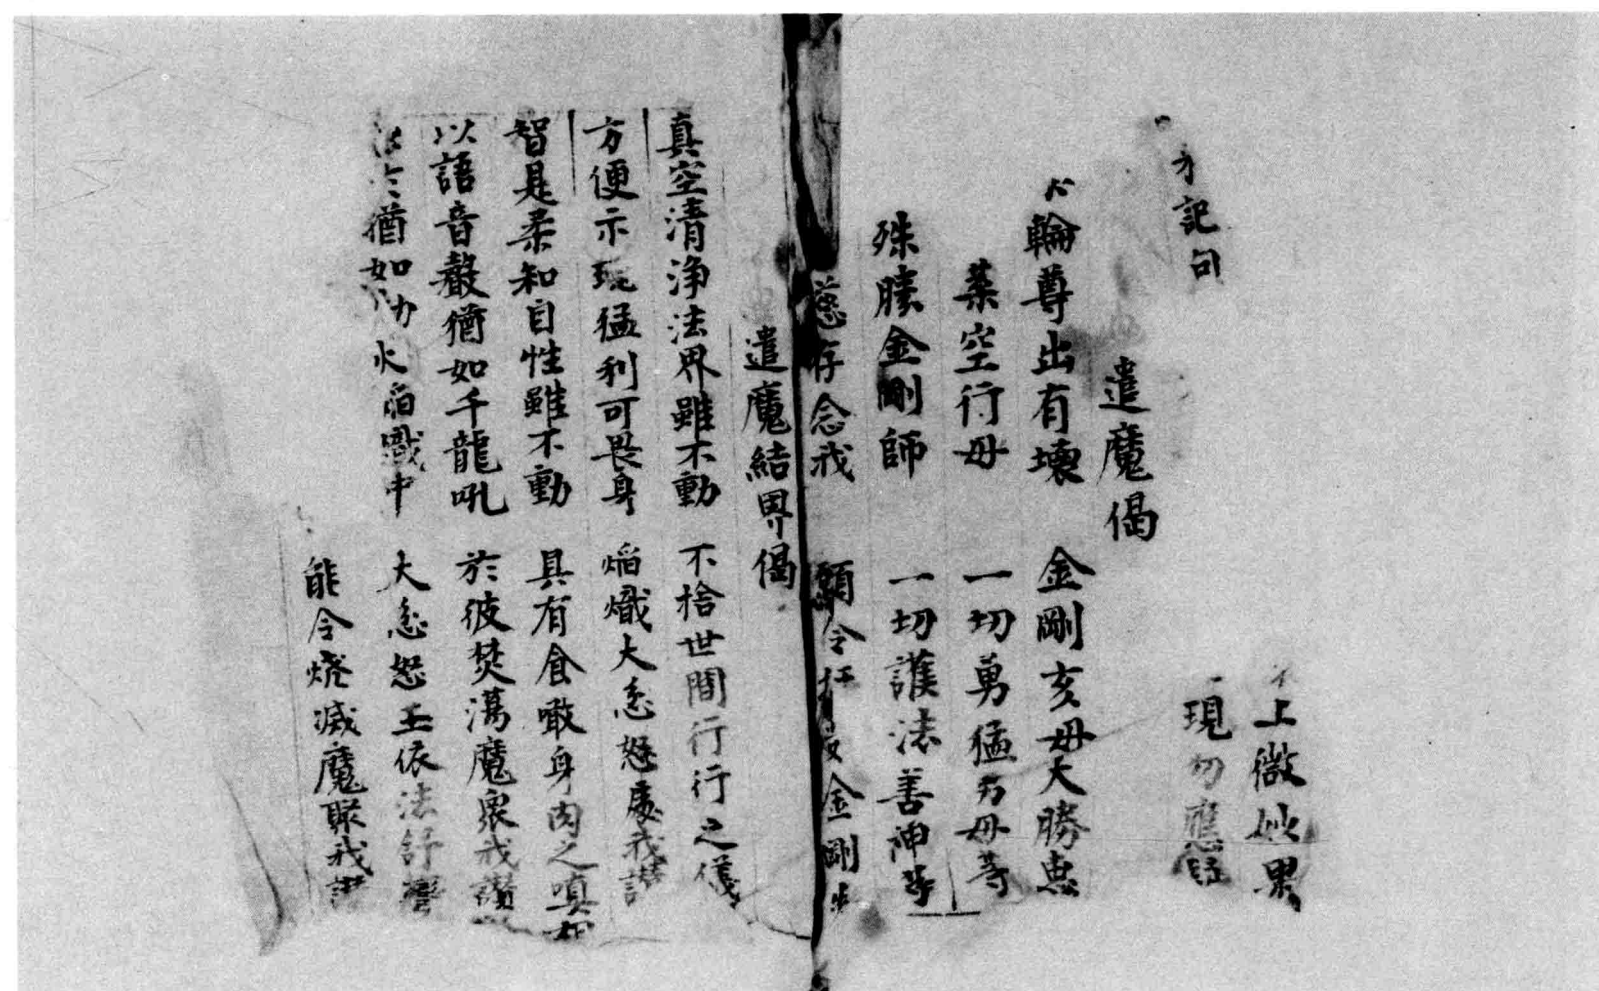 上微妙果
記句　現勿應
遣魔偈
輪尊出有壞　金剛亥母大勝惠
葉空行母　一切勇猛勇母等
殊勝金剛師　一切護法善神等
慈存念我　願令　金剛
遣魔結界偈
真空清淨法界雖不動　不捨世間行行之儀
方便示現猛利可畏身　焰熾大忿怒處我讃
智是柔和自性雖不動　具有食噉身肉之嗔相
以語音聲猶如千龍吼　於彼焚蕩魔眾我讃
猶如劫火焰熾中　大忿怒王依法訶
能令燒滅魔眾我讃